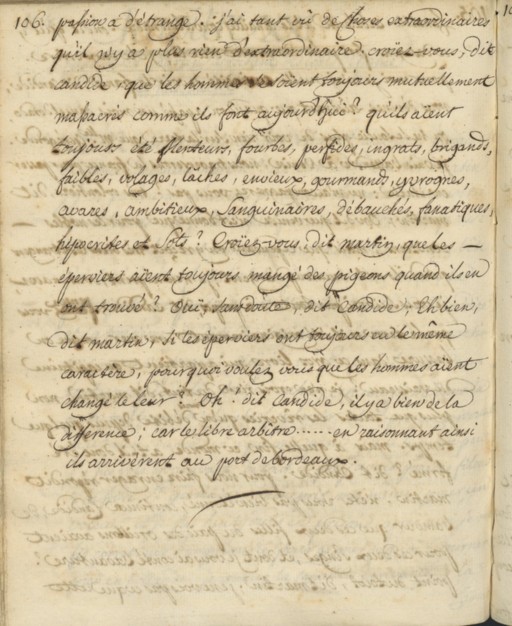 106. passion a d'étrange. j'ai tant vû de choses extraordinaires
qu'il n'y a plus rien d'extraordinaire. croiez-vous, dit
candide, que les hommes se soient toujours mutuellement
massacrés comme ils font aujourd'huië? qu'ils aïent
toujours été menteurs, fourbes, perfides, ingrats, brigands,
faibles, volages, lâches, envieux, gourmands, yvrognes,
avares, ambitieux, Sanguinaires, débauchés, fanatiques,
hipocrites et Sots? Croïez-vous, dit martin, que les —
éperviers aïent toujours mangé des pigeons quand ils en
ont trouvé? Ouï, sans doute, dit Candide; Eh bien,
dit martin, Si les éperviers ont toujours eu le même
caractère, pourquoi voulez vous que les hommes aïent
changé le leur? Oh! dit Candide, il y a bien de la
différence; car le libre arbitre ...... en raisonnant ainsi
ils arrivèrent au port de bordeaux.